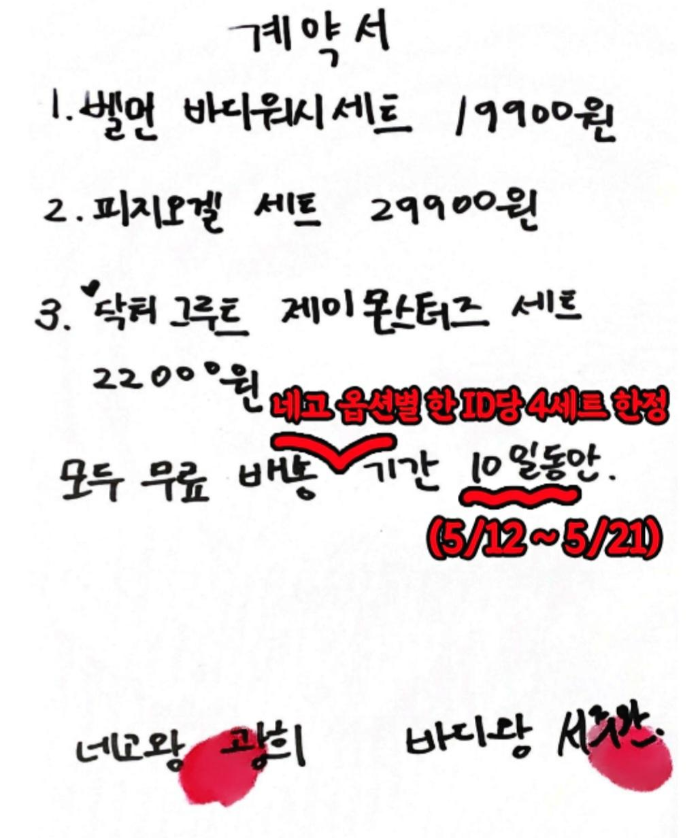 계약서
1. 벨먼 바디워시세트 19900원
2. 피지오겔 세트 29900원
3. 닥터 그루트 제이몬스터즈 세트
22000원
네고 옵션별 한 ID당 4세트 한정
모두 무료 배송 기간 10일동안.
(5/12~5/21)
네고왕 광희 바디왕